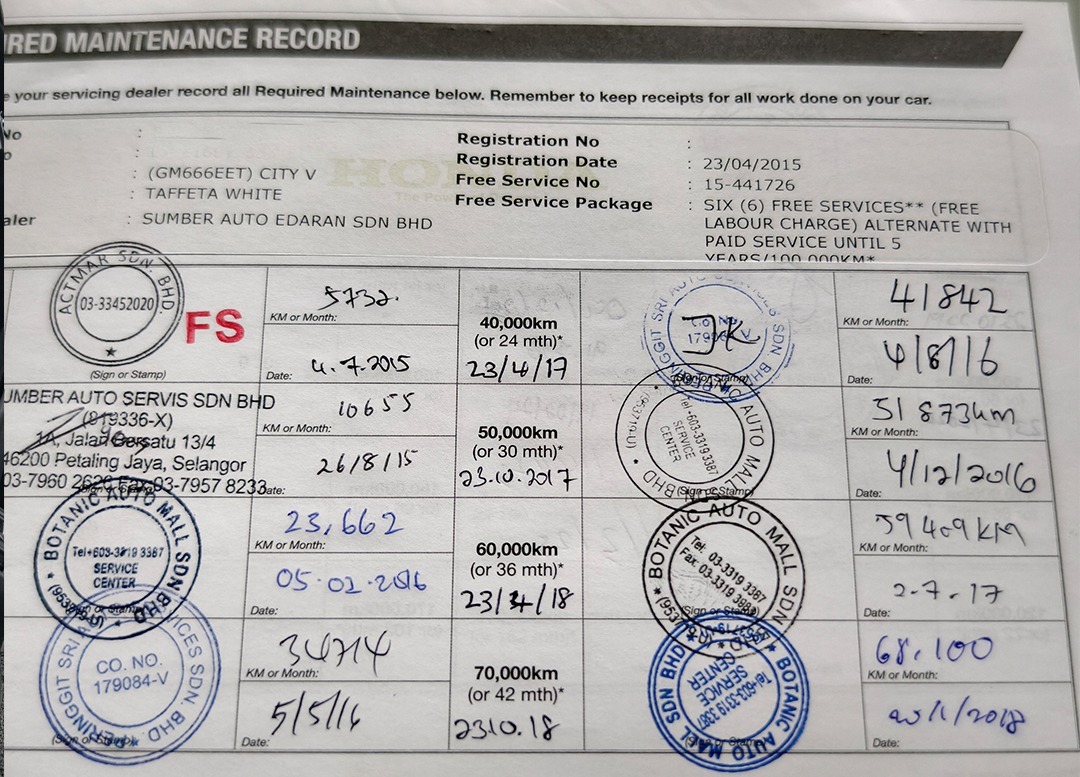 IRED MAINTENANCE RECORD
e your servicing dealer record all Required Maintenance below. Remember to keep receipts for all work done on your car.
No :
:
: (GM666EET) CITY V
: TAFFETA WHITE
aler : SUMBER AUTO EDARAN SDN BHD
Registration No :
Registration Date : 23/04/2015
Free Service No : 15-441726
Free Service Package : SIX (6) FREE SERVICES** (FREE
LABOUR CHARGE) ALTERNATE WITH
PAID SERVICE UNTIL 5
YEARS/100,000KM*
HONDA
ACTMAR SDN. BHD.
03-33452020
FS
(Sign or Stamp)
5732.
KM or Month:
4.7.2015
Date:
40,000km
(or 24 mth)*
23/4/17
SRI AUTO
SDN. BHD.
(Sign or Stamp)
41842
KM or Month:
4/8/16
Date:
UMBER AUTO SERVIS SDN BHD
(819336-X)
1A, Jalan Bersatu 13/4
46200 Petaling Jaya, Selangor
03-7960 2626 Fax 03-7957 8233
10655
KM or Month:
26/8/15
Date:
50,000km
(or 30 mth)*
23.10.2017
AUTO MALL
BHD
Tel +603-3319 3387
SERVICE
CENTER
(Sign or Stamp)
51873km
KM or Month:
4/12/2016
Date:
BOTANIC AUTO MALL SDN BHD
Tel+603-3319 3387
SERVICE
CENTER
(Sign or Stamp)
23,662
KM or Month:
05.02.2016
Date:
60,000km
(or 36 mth)*
23/4/18
BOTANIC AUTO MALL SDN
Tel: 03-3319 3387
Fax: 03-3319
(Sign or Stamp)
59409KM
KM or Month:
2-7.17
Date:
PERINGGIT SRI
SDN. BHD.
CO. NO.
179084-V
(Sign or Stamp)
34714
KM or Month:
5/5/16
Date:
70,000km
(or 42 mth)*
23.10.18
BOTANIC AUTO MALL SDN BHD
Tel+603-3319 3387
SERVICE
CENTER
(Sign or Stamp)
68,100
KM or Month:
/1/2018
Date: